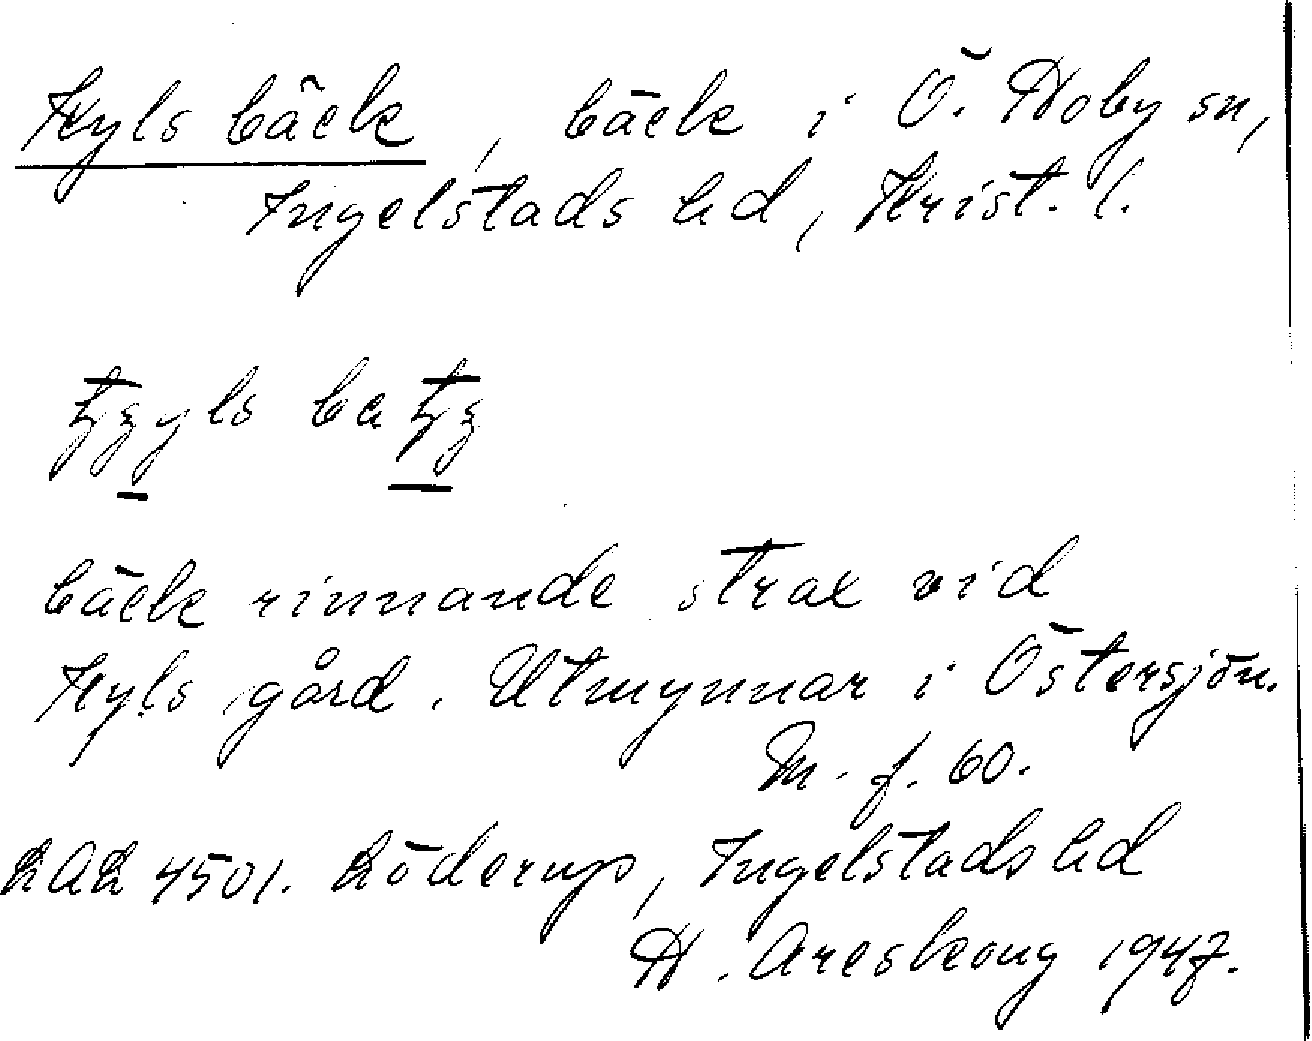 Kyls bäck, bäck i Ö. Hoby sn,
Ingelstads hd, Krist. l.
bäck rinnande strax vid
Kyls gård. Utmynnar i Östersjön.
M. f. 60.
4501. Löderup, Ingelstads hd
H. Areskoug 1947.